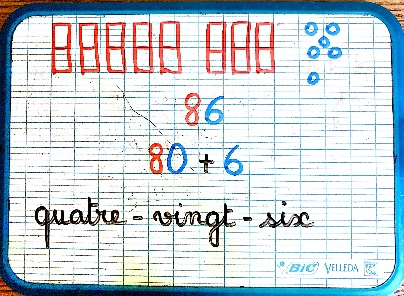 86
80 + 6
quatre - vingt - six
BIC VELLEDA